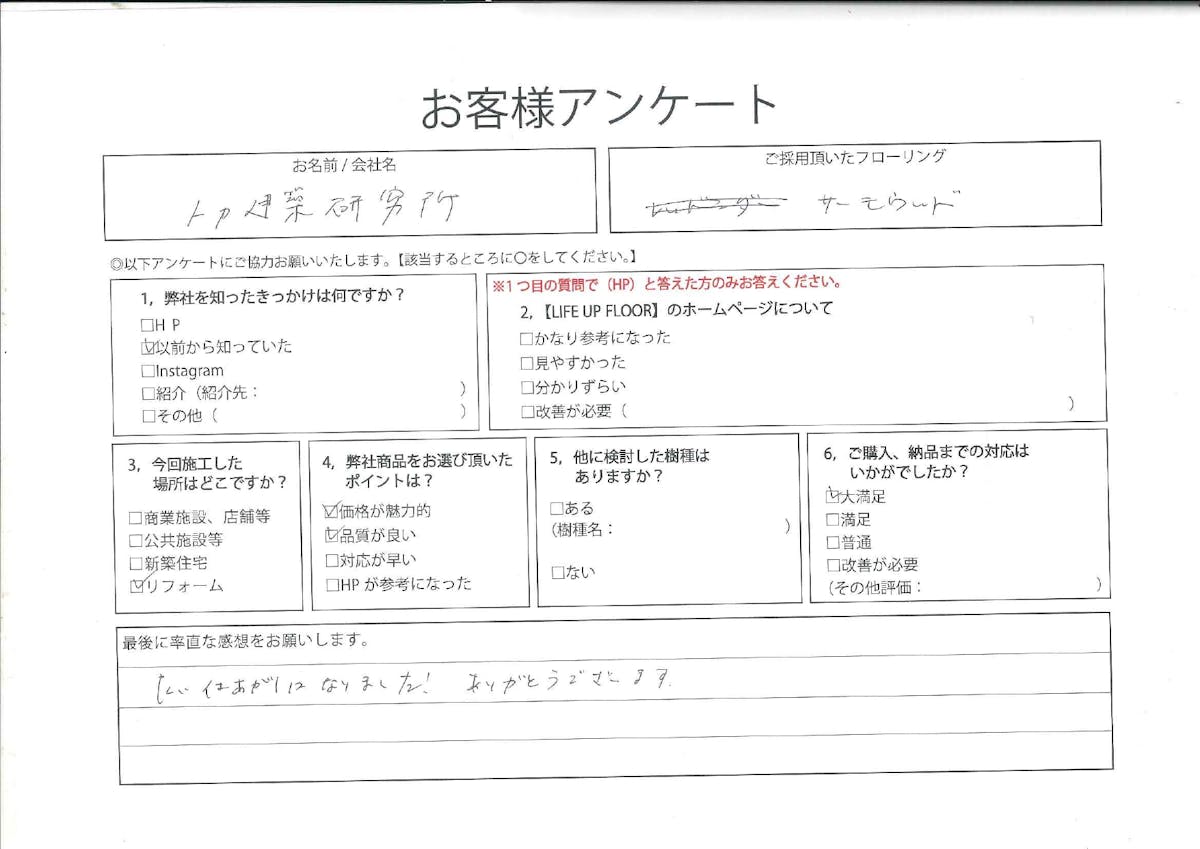 お客様アンケート
お名前 / 会社名
トカ建築研究所
ご採用頂いたフローリング
サーモウッド
◎以下アンケートにご協力お願いいたします。【該当するところに〇をしてください。】
1，弊社を知ったきっかけは何ですか？
□H P
☑以前から知っていた
□Instagram
□紹介（紹介先： ）
□その他（ ）
※1つ目の質問で（HP）と答えた方のみお答えください。
2，【LIFE UP FLOOR】のホームページについて
□かなり参考になった
□見やすかった
□分かりずらい
□改善が必要（ ）
3，今回施工した
場所はどこですか？
□商業施設、店舗等
□公共施設等
□新築住宅
☑リフォーム
4，弊社商品をお選び頂いた
ポイントは？
☑価格が魅力的
☑品質が良い
□対応が早い
□HPが参考になった
5，他に検討した樹種は
ありますか？
□ある
（樹種名： ）
□ない
6，ご購入、納品までの対応は
いかがでしたか？
☑大満足
□満足
□普通
□改善が必要
（その他評価： ）
最後に率直な感想をお願いします。
いい仕あがりになりました！ ありがとうございます。